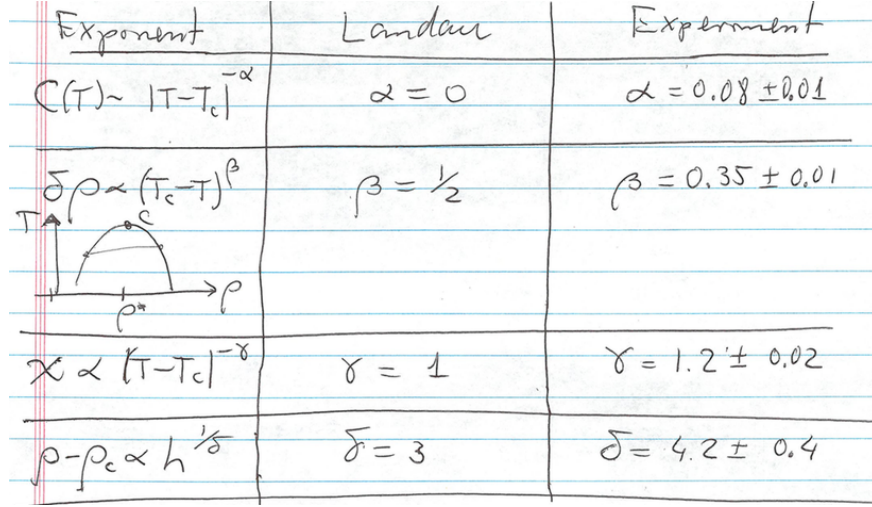 Exponent Landau Experiment
C(T)~ |T-T_c|^{-α} α = 0 α = 0.08 ± 0.01
δρ ∝ (T_c-T)^β β = 1/2 β = 0.35 ± 0.01
T C
ρ
ρ*
χ ∝ |T-T_c|^{-γ} γ = 1 γ = 1.2 ± 0.02
ρ-ρ_c ∝ h^{1/δ} δ = 3 δ = 4.2 ± 0.4